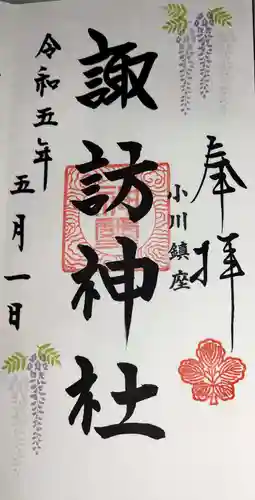 奉拝
小川鎮座
諏訪神社
令和五年
五月一日